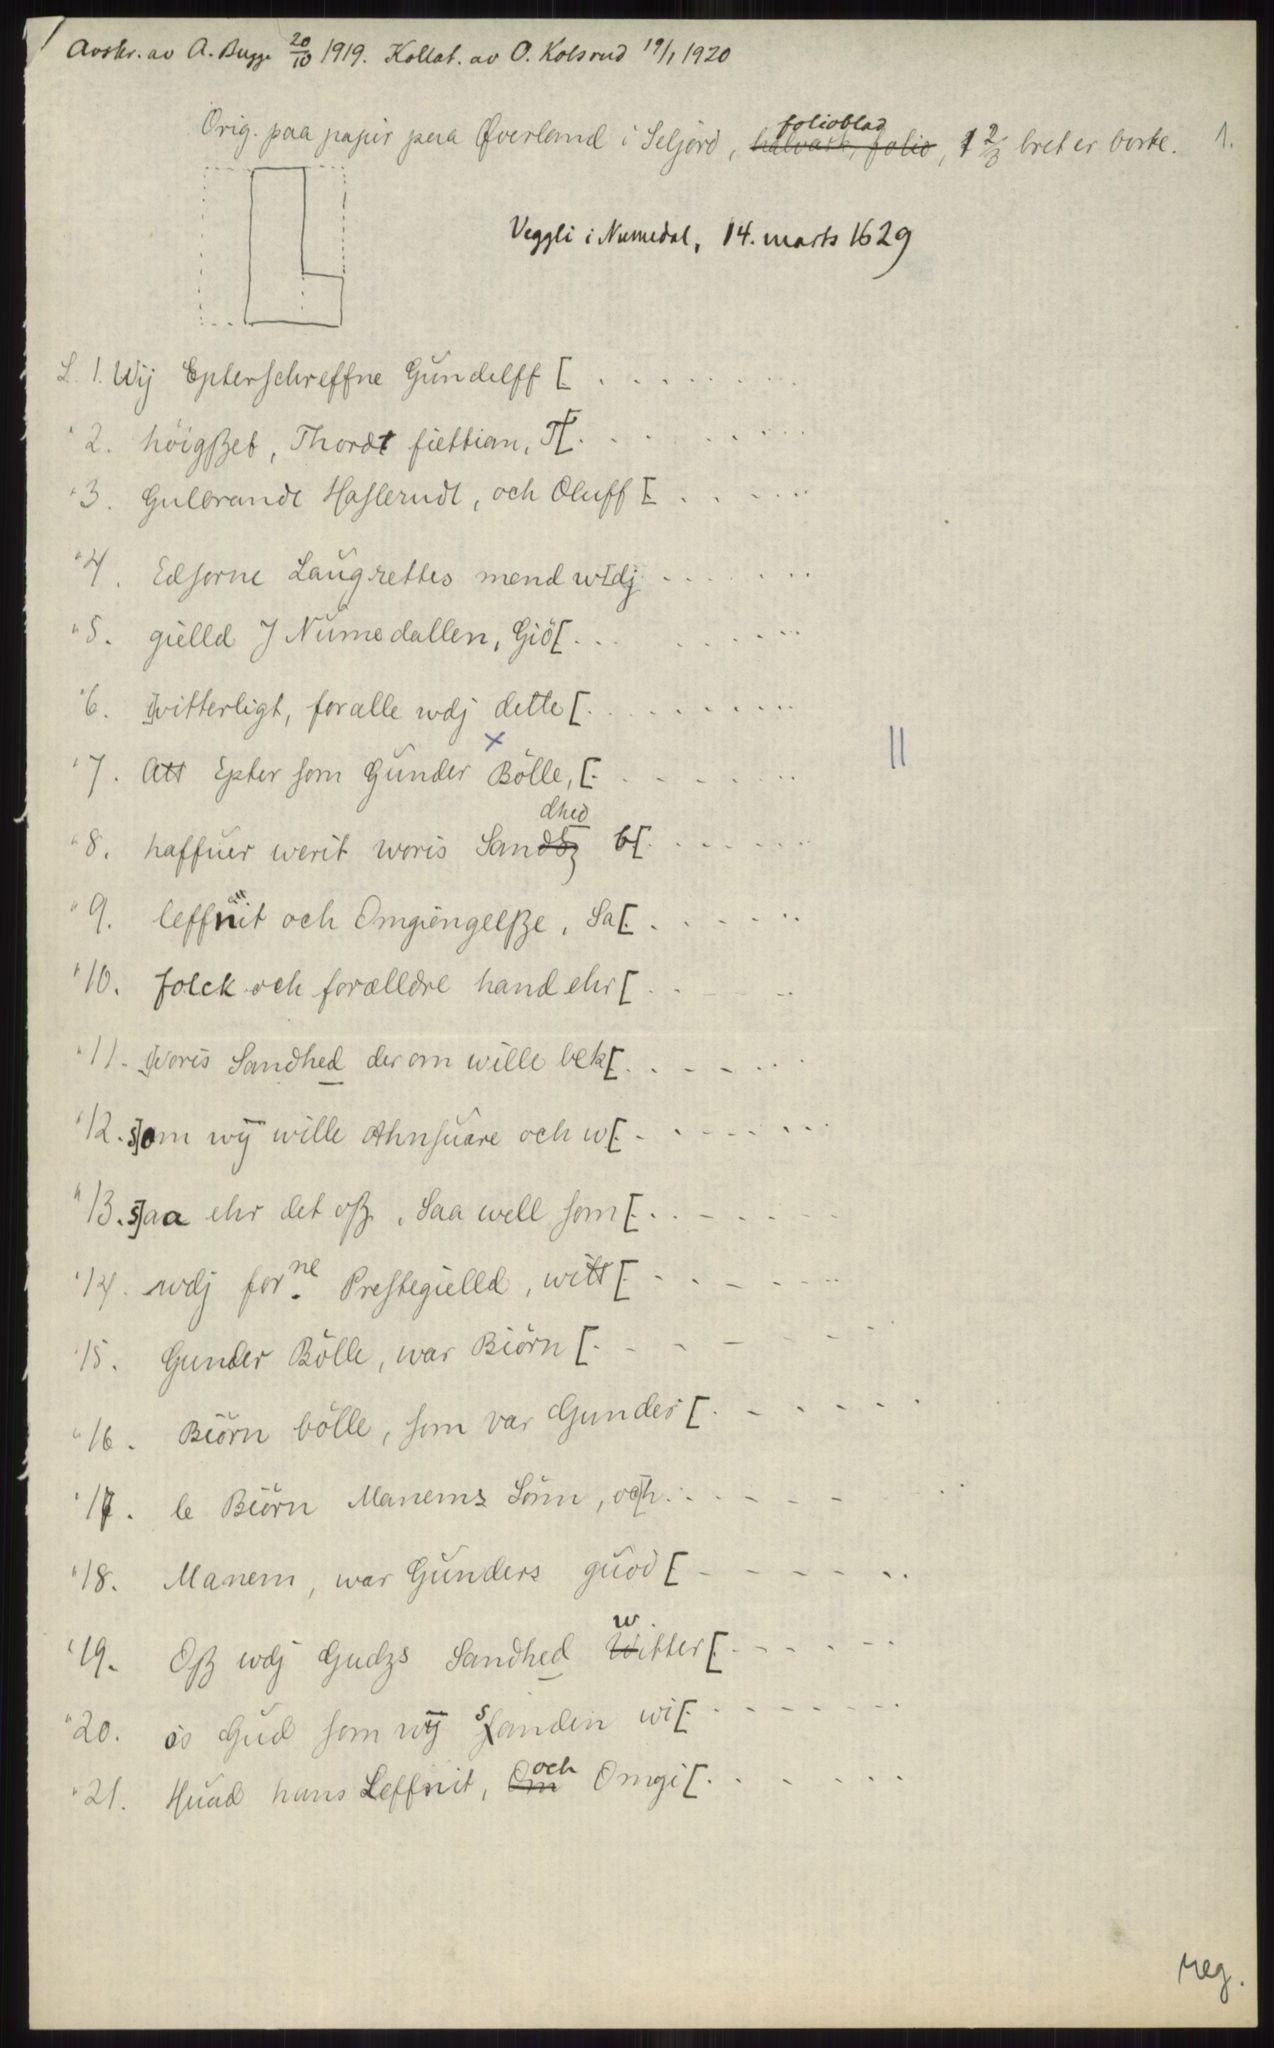 Avskr. av A. Bugge 20/10 1919. Kollat. av O. Kolsrud 19/1 1920
Orig. paa papir paa Øverland i Seljord, folioblad, 1 2/3 bret er borte. 1.
Veggli i Numedal, 14. marts 1629
L. 1. Wij Epterschreffne Gŭndelff [ . . . . . . . .
" 2. höigßet, Thordt fiettian, T[ . . . . . . . .
" 3. Gulbrandt Haslerudt, och Oluff [ . . . . .
" 4. Edsorne Laŭgrettes mend w[dj . . . . . .
" 5. gielld J Nŭmedallen, Giö[ . . . . . . .
" 6. witterligt, for alle wdj dette [ . . . . . . . .
" 7. Att Epter som Gŭnder Bölle, [ . . . . . . ||
" 8. haffŭer werit woris Sandhed b[ . . . . . .
" 9. leffnit och Omgiengelße, Sa[ . . . . . .
" 10. folck och forælldre hand ehr [ . . . . . .
" 11. Woris Sandhed der om wille bek[ . . . . . .
" 12. s]om wij wille Ahnsŭare och w[ . . . . . . .
" 13. s]aa ehr det oß, Saa well som [ . . . . . .
" 14. wdj forne. Prestegielld, witt[ . . . . . .
" 15. Gunder Bölle, war Biörn [ . . . . . .
" 16. Biörn bölle, som var Gunders [ . . . . . .
" 17. le Biörn Manems Sönn, och . . . . . . .
" 18. Manem, war Gŭnders gŭod [ . . . . . .
" 19. Oß wdj Gudzs Sandhed witter[ . . . . . .
" 20. os Gŭd som wij sanden wi[ . . . . . . .
" 21. Hŭad hans Leffnit, och Omgi[ . . . . . .
reg.